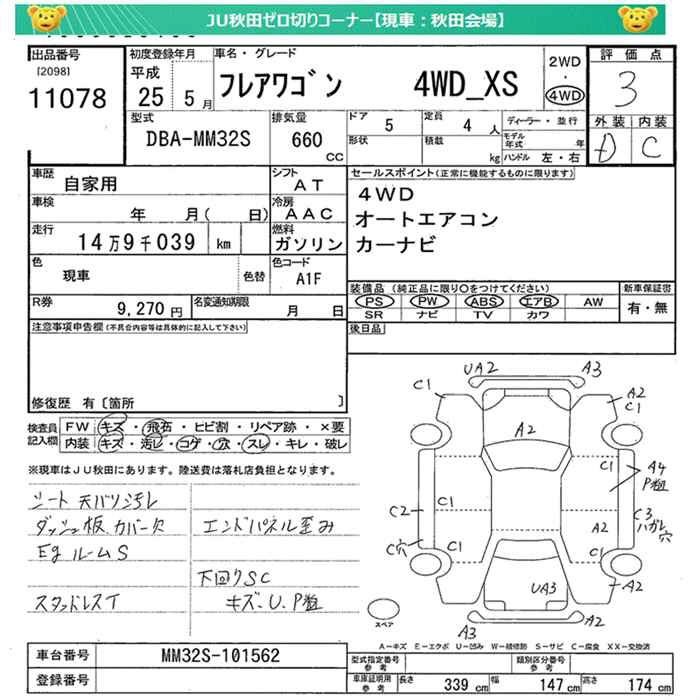 JU秋田ゼロ切りコーナー【現車：秋田会場】
出品番号
[2098]
11078
初度登録年月
平成
25 5月
車名・グレード
フレアワゴン 4WD_XS
2WD
・
4WD
評価点
3
外装 内装
D C
型式
DBA-MM32S
排気量
660
CC
ドア 5
定員 4 人
形状
積載 kg
ディーラー・並行
モデル年式 年
ハンドル 左・右
車歴
自家用
シフト
AT
車検
年 月( 日)
冷房
AAC
走行
14万9千039 km
燃料
ガソリン
色
現車
色替
色コード
A1F
R券
9,270円
名変通知期限
月 日
セールスポイント(正常に機能するものに限ります)
4WD
オートエアコン
カーナビ
装備品 (純正品に限り○をつけてください)
PS PW ABS エアB AW
SR ナビ TV カワ
新車保証書
有・無
後日品
注意事項申告欄(不具合内容等は具体的に記入して下さい)
修復歴 有〔箇所 〕
検査員記入欄
FW キズ・飛石・ヒビ割・リペア跡・×要
内装 キズ・汚レ・コゲ・穴・スレ・キレ・破レ
※現車はJU秋田にあります。陸送費は落札店負担となります。
シート 天バリ汚レ
ダッシュ板、カバー欠 エンドパネル歪み
Egルーム S
下回りSC
スタッドレスT キズ、U、P粗
UA2 A3
C1 A2
C1
A2
C1 C1 A4
P粗
C2 C3
ハガレ
穴
A2
C穴 C1 C1
UA3 A2
A3 A2
スペア
A－キズ E－エクボ U－凹み W－補修跡 S－サビ C－腐食 XX－交換済
車台番号 MM32S-101562
登録番号
型式指定番号
参考
類別区分番号
参考
車庫証明用
参考
長さ 339 cm 幅 147 cm 高さ 174 cm